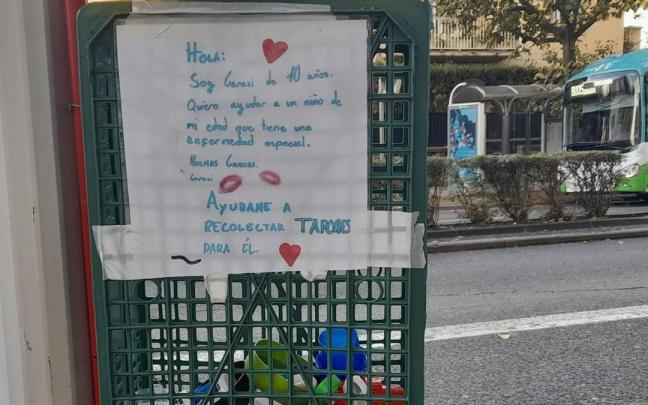 HOLA:
Soy Garazi de 10 años.
Quiero ayudar a un niño de
mi edad que tiene una
enfermedad especial.
MUCHAS GRACIAS.
Garazi
AYUDAME A
RECOLECTAR TAPONES
PARA ÉL.